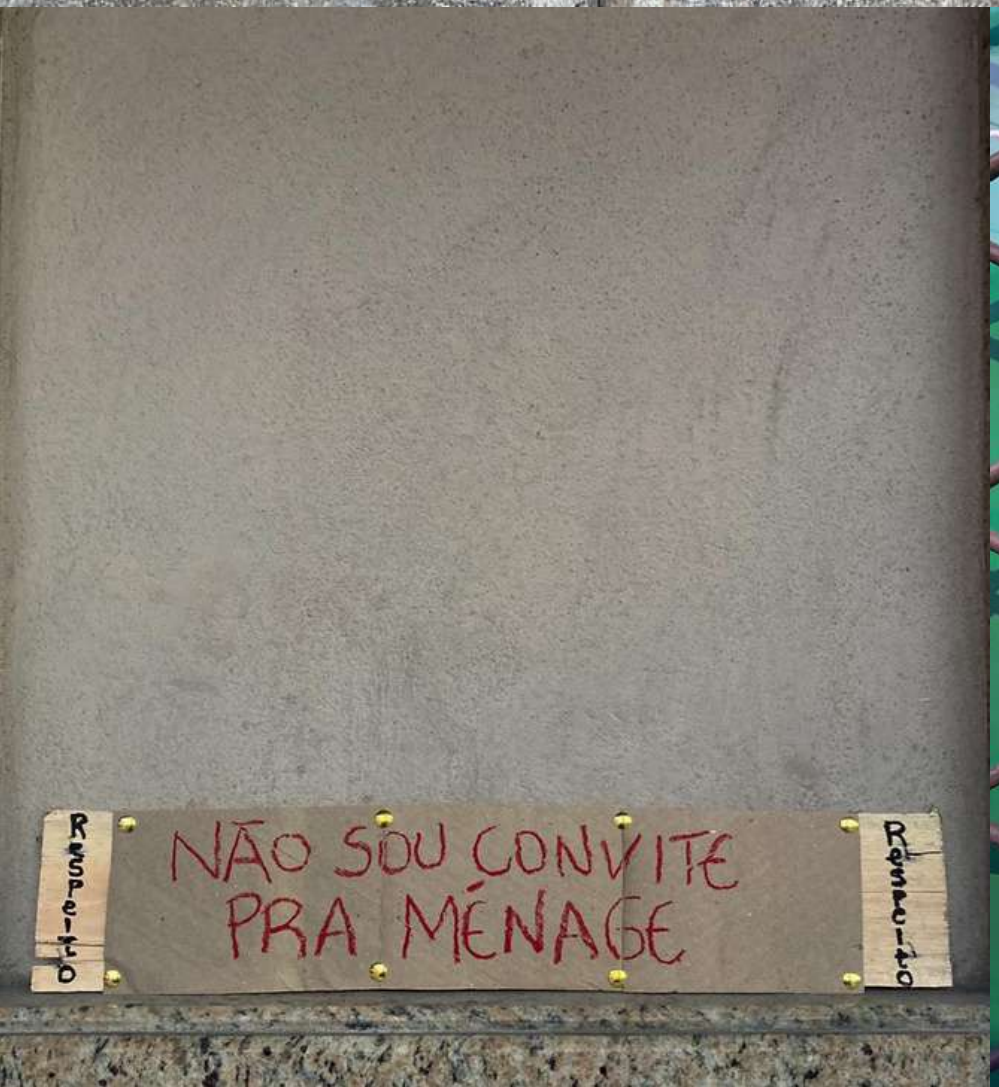 Respeito
NÃO SOU CONVITE
PRA MÉNAGE
Respeito